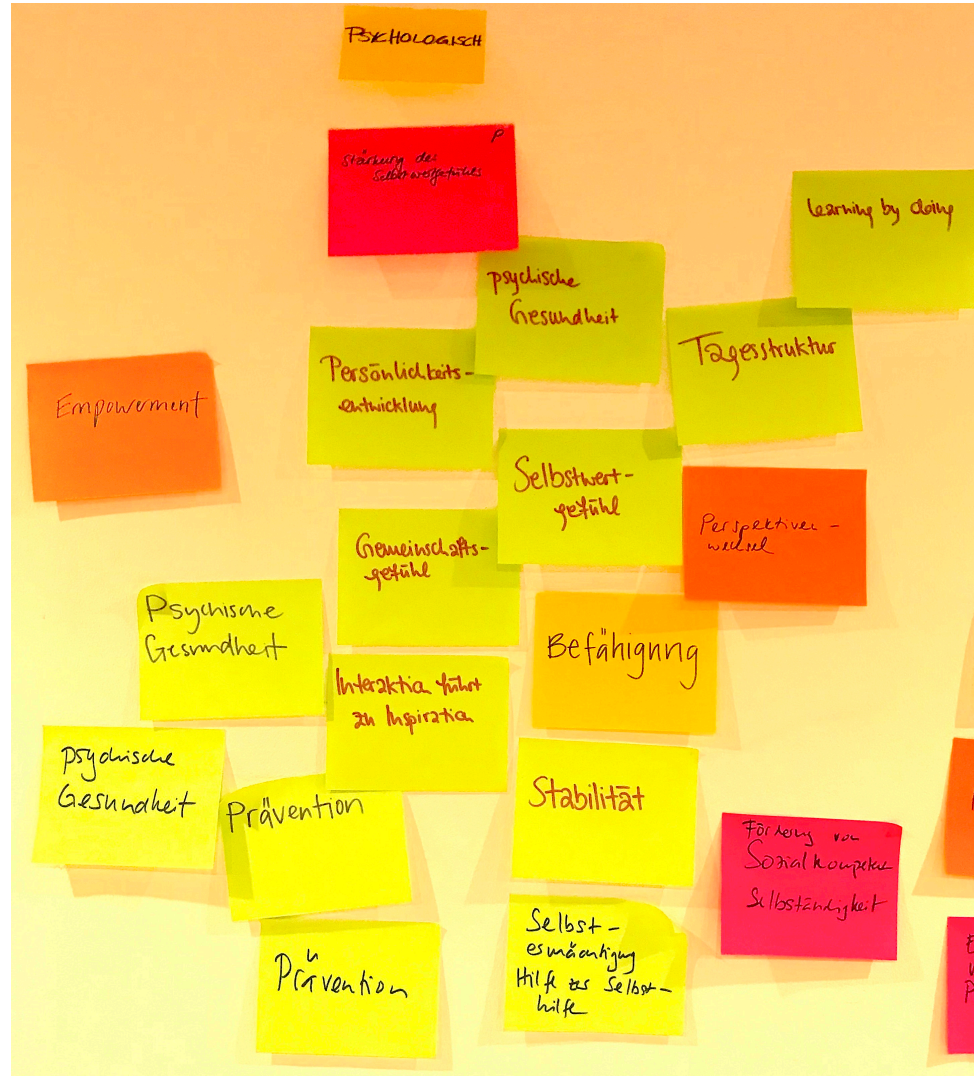 PSYCHOLOGISCH
P
Stärkung des
Selbstwertgefühles
learning by doing
psychische
Gesundheit
Tagesstruktur
Persönlichkeits-
entwicklung
Empowerment
Selbstwert-
gefühl
Perspektiven-
wechsel
Gemeinschafts-
gefühl
Psychische
Gesundheit
Befähigung
Interaktion führt
zu Inspiration
psychische
Gesundheit
Prävention
Stabilität
Förderung von
Sozialkompetenz
Selbständigkeit
Prävention
Selbst-
ermächtigung
Hilfe zur Selbst-
hilfe